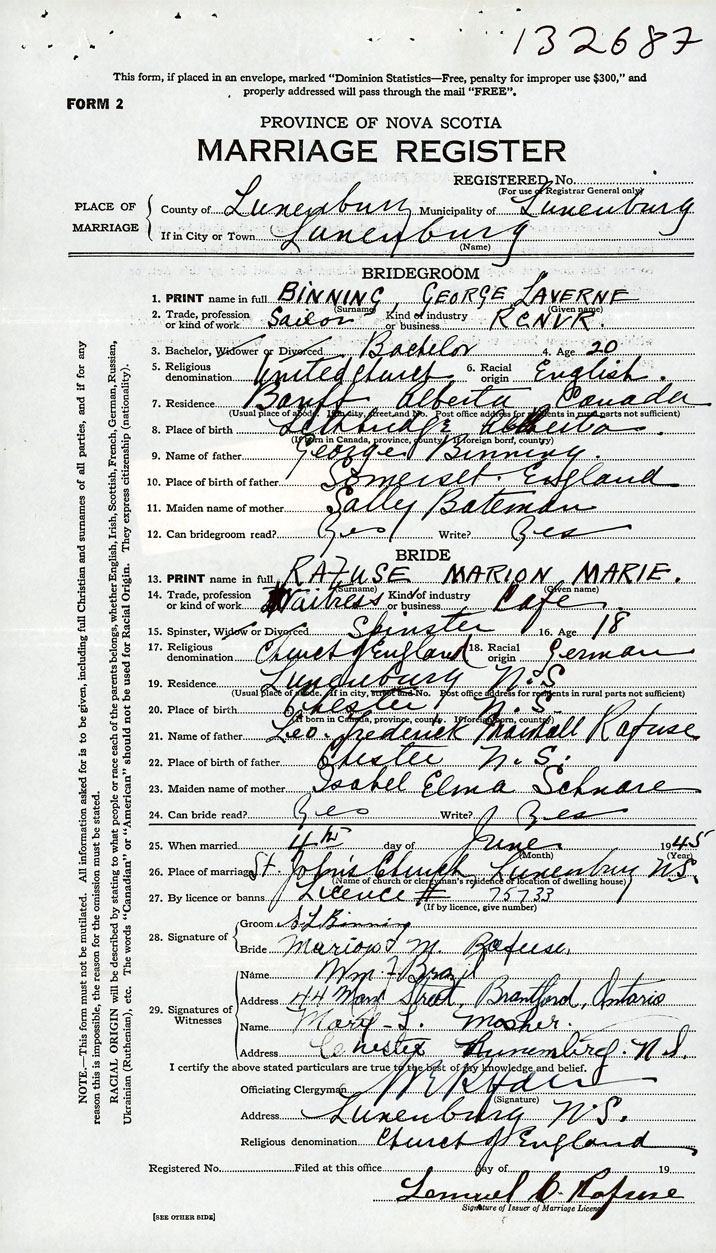 132687
This form, if placed in an envelope, marked "Dominion Statistics—Free, penalty for improper use $300," and
properly addressed will pass through the mail "FREE".
FORM 2
PROVINCE OF NOVA SCOTIA
MARRIAGE REGISTER
REGISTERED No.
(For use of Registrar General only)
PLACE OF MARRIAGE
County of Lunenburg Municipality of Lunenburg
If in City or Town Lunenburg
(Name)
BRIDEGROOM
1. PRINT name in full BINNING GEORGE LAVERNE
(Surname) (Given name)
2. Trade, profession or kind of work Sailor Kind of industry or business R.C.N.V.R.
3. Bachelor, Widower or Divorced Bachelor 4. Age 20
5. Religious denomination United church 6. Racial origin English.
7. Residence Banff Alberta Canada
(Usual place of abode. If in city, street and No. Post office address for residents in rural parts not sufficient)
8. Place of birth Lethbridge Alberta
(If born in Canada, province, county; if foreign born, country)
9. Name of father George Binning.
10. Place of birth of father Somerset. England
11. Maiden name of mother Sally Bateman
12. Can bridegroom read? Yes Write? Yes
BRIDE
13. PRINT name in full RAFUSE MARION MARIE.
(Surname) (Given name)
14. Trade, profession or kind of work Waitress Kind of industry or business Cafe.
15. Spinster, Widow or Divorced Spinster 16. Age 18
17. Religious denomination Church of England 18. Racial origin German
19. Residence Lunenburg N.S.
(Usual place of abode. If in city, street and No. Post office address for residents in rural parts not sufficient)
20. Place of birth Chester N.S.
(If born in Canada, province, county. If foreign born, country)
21. Name of father Leo. Frederick Marshall Rafuse
22. Place of birth of father Chester N.S.
23. Maiden name of mother Isabel Elma Schnare
24. Can bride read? Yes Write? Yes
25. When married 4th day of June 1945
(Month) (Year)
26. Place of marriage St. John's Church Lunenburg N.S.
(Name of church or clergyman's residence or location of dwelling house)
27. By licence or banns Licence # 75733
(If by licence, give number)
28. Signature of
Groom G L Binning
Bride Marion M. Rafuse.
29. Signatures of Witnesses
Name Wm F.
Address 44 Street, Brantford, Ontario
Name Mary L. Mosher.
Address Chester Lunenburg. N.S.
I certify the above stated particulars are true to the best of my knowledge and belief.
Officiating Clergyman
(Signature)
Address Lunenburg N.S.
Religious denomination Church of England
Registered No. Filed at this office day of 19
Lemuel C. Rafuse
Signature of Issuer of Marriage Licence
[SEE OTHER SIDE]
NOTE.—This form must not be mutilated. All information asked for is to be given, including full Christian and surnames of all parties, and if for any
reason this is impossible, the reason for the omission must be stated.
RACIAL ORIGIN will be described by stating to what people or race each of the parents belongs, whether English, Irish, Scottish, French, German, Russian,
Ukrainian (Ruthenian), etc. The words "Canadian" or "American" should not be used for Racial Origin. They express citizenship (nationality).